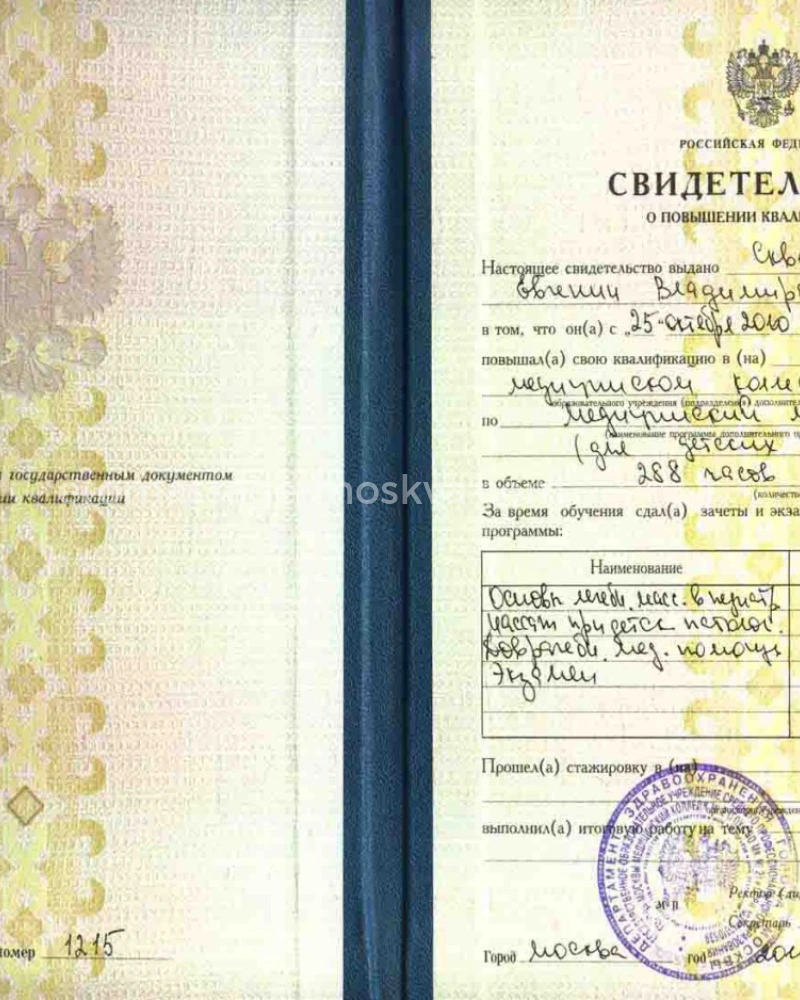 государственным документом
ии квалификации
номер 1215
РОССИЙСКАЯ ФЕДЕ
СВИДЕТЕЛ
О ПОВЫШЕНИИ КВАЛИ
Настоящее свидетельство выдано
Евгении Владимиро
в том, что он(а) с „25“ октября 2010
повышал(а) свою квалификацию в (на)
медицинском колле
образовательного учреждения (подразделения) дополнитель
по медицинский м
(наименование программы дополнительного пр
(для детских
в объеме 288 часов
(количество
За время обучения сдал(а) зачеты и экза
программы:
Наименование
Основы лечебн. масс. в педиатр
массаж при детск. патолог.
Доврачебн. мед. помощь
Экзамен
Прошел(а) стажировку в (на)
выполнил(а) итоговую работу на тему
ДЕПАРТАМЕНТ ЗДРАВООХРАНЕНИЯ
М П
Ректор (ди
Секретарь
Город Москва год
moskv